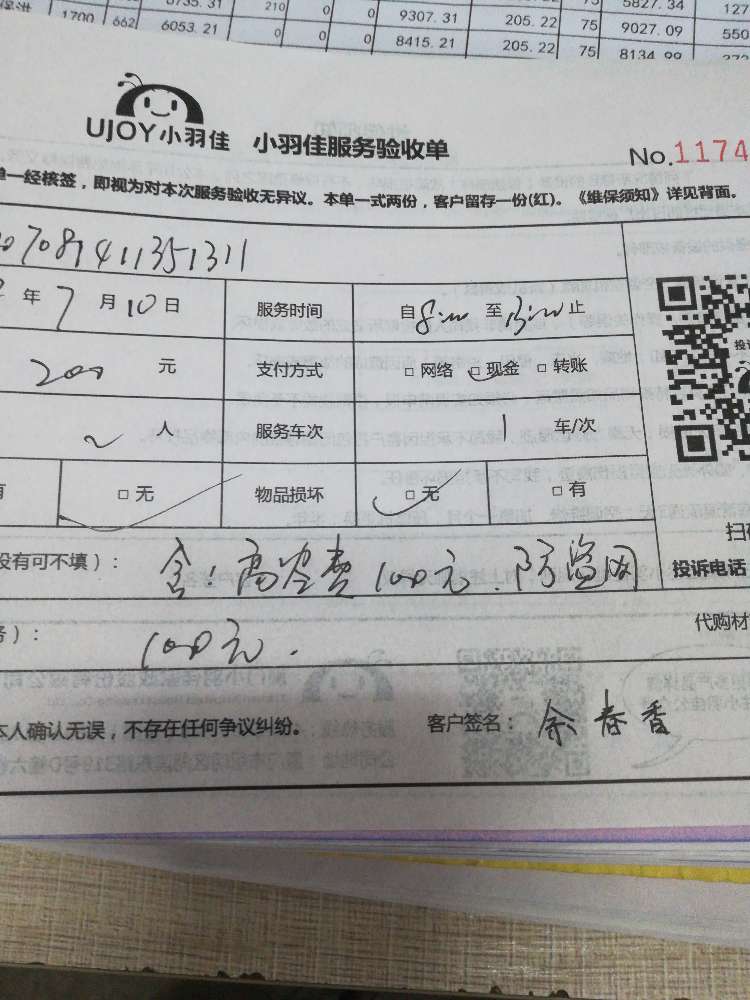 1700 662 6053.21 210 0 0 9307.31 205.22 75 5827.34 127
0 0 8415.21 205.22 75 9027.09 550
8134.99
UJOY小羽佳 小羽佳服务验收单
No.1174
单一经核签，即视为对本次服务验收无异议。本单一式两份，客户留存一份(红)。《维保须知》详见背面。
070891411351311
年7月10日 服务时间 自8:00至 止
200 元 支付方式 □网络 □现金 □转账
2 人 服务车次 1 车/次
□无 物品损坏 □无 □有
没有可不填)： 含：高空费100元.防盗网
投诉电话
100元.
代购材
本人确认无误，不存在任何争议纠纷。 客户签名：余春香